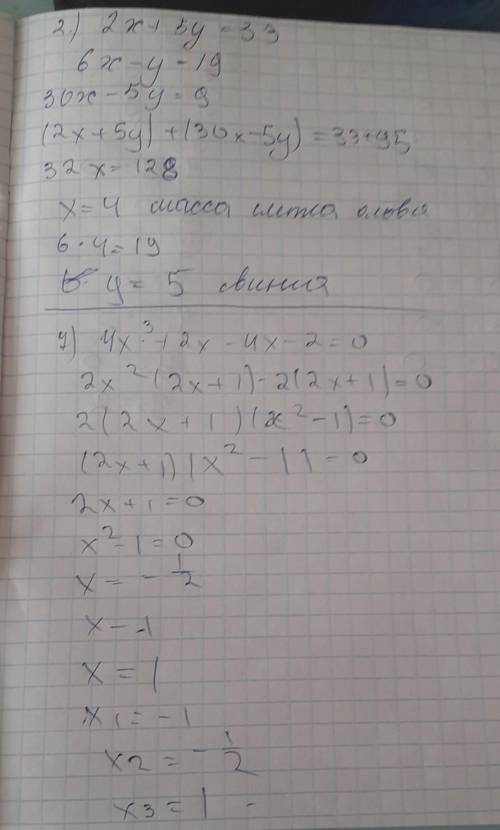 2) 2x + 5y = 33
6x - y - 19
30x - 5y = 9
(2x + 5y) + (30x - 5y) = 33 + 95
32x = 128
x = 4 масса слитка олова
6 · 4 = 19
y = 5 свинца
4x³ + 2x - 4x - 2 = 0
2x² (2x + 1) - 2(2x + 1) = 0
2(2x + 1)(x² - 1) = 0
(2x + 1)(x² - 1) = 0
2x + 1 = 0
x² - 1 = 0
x = - 1/2
x - -1
x = 1
x1 = -1
x2 = - 1/2
x3 = 1